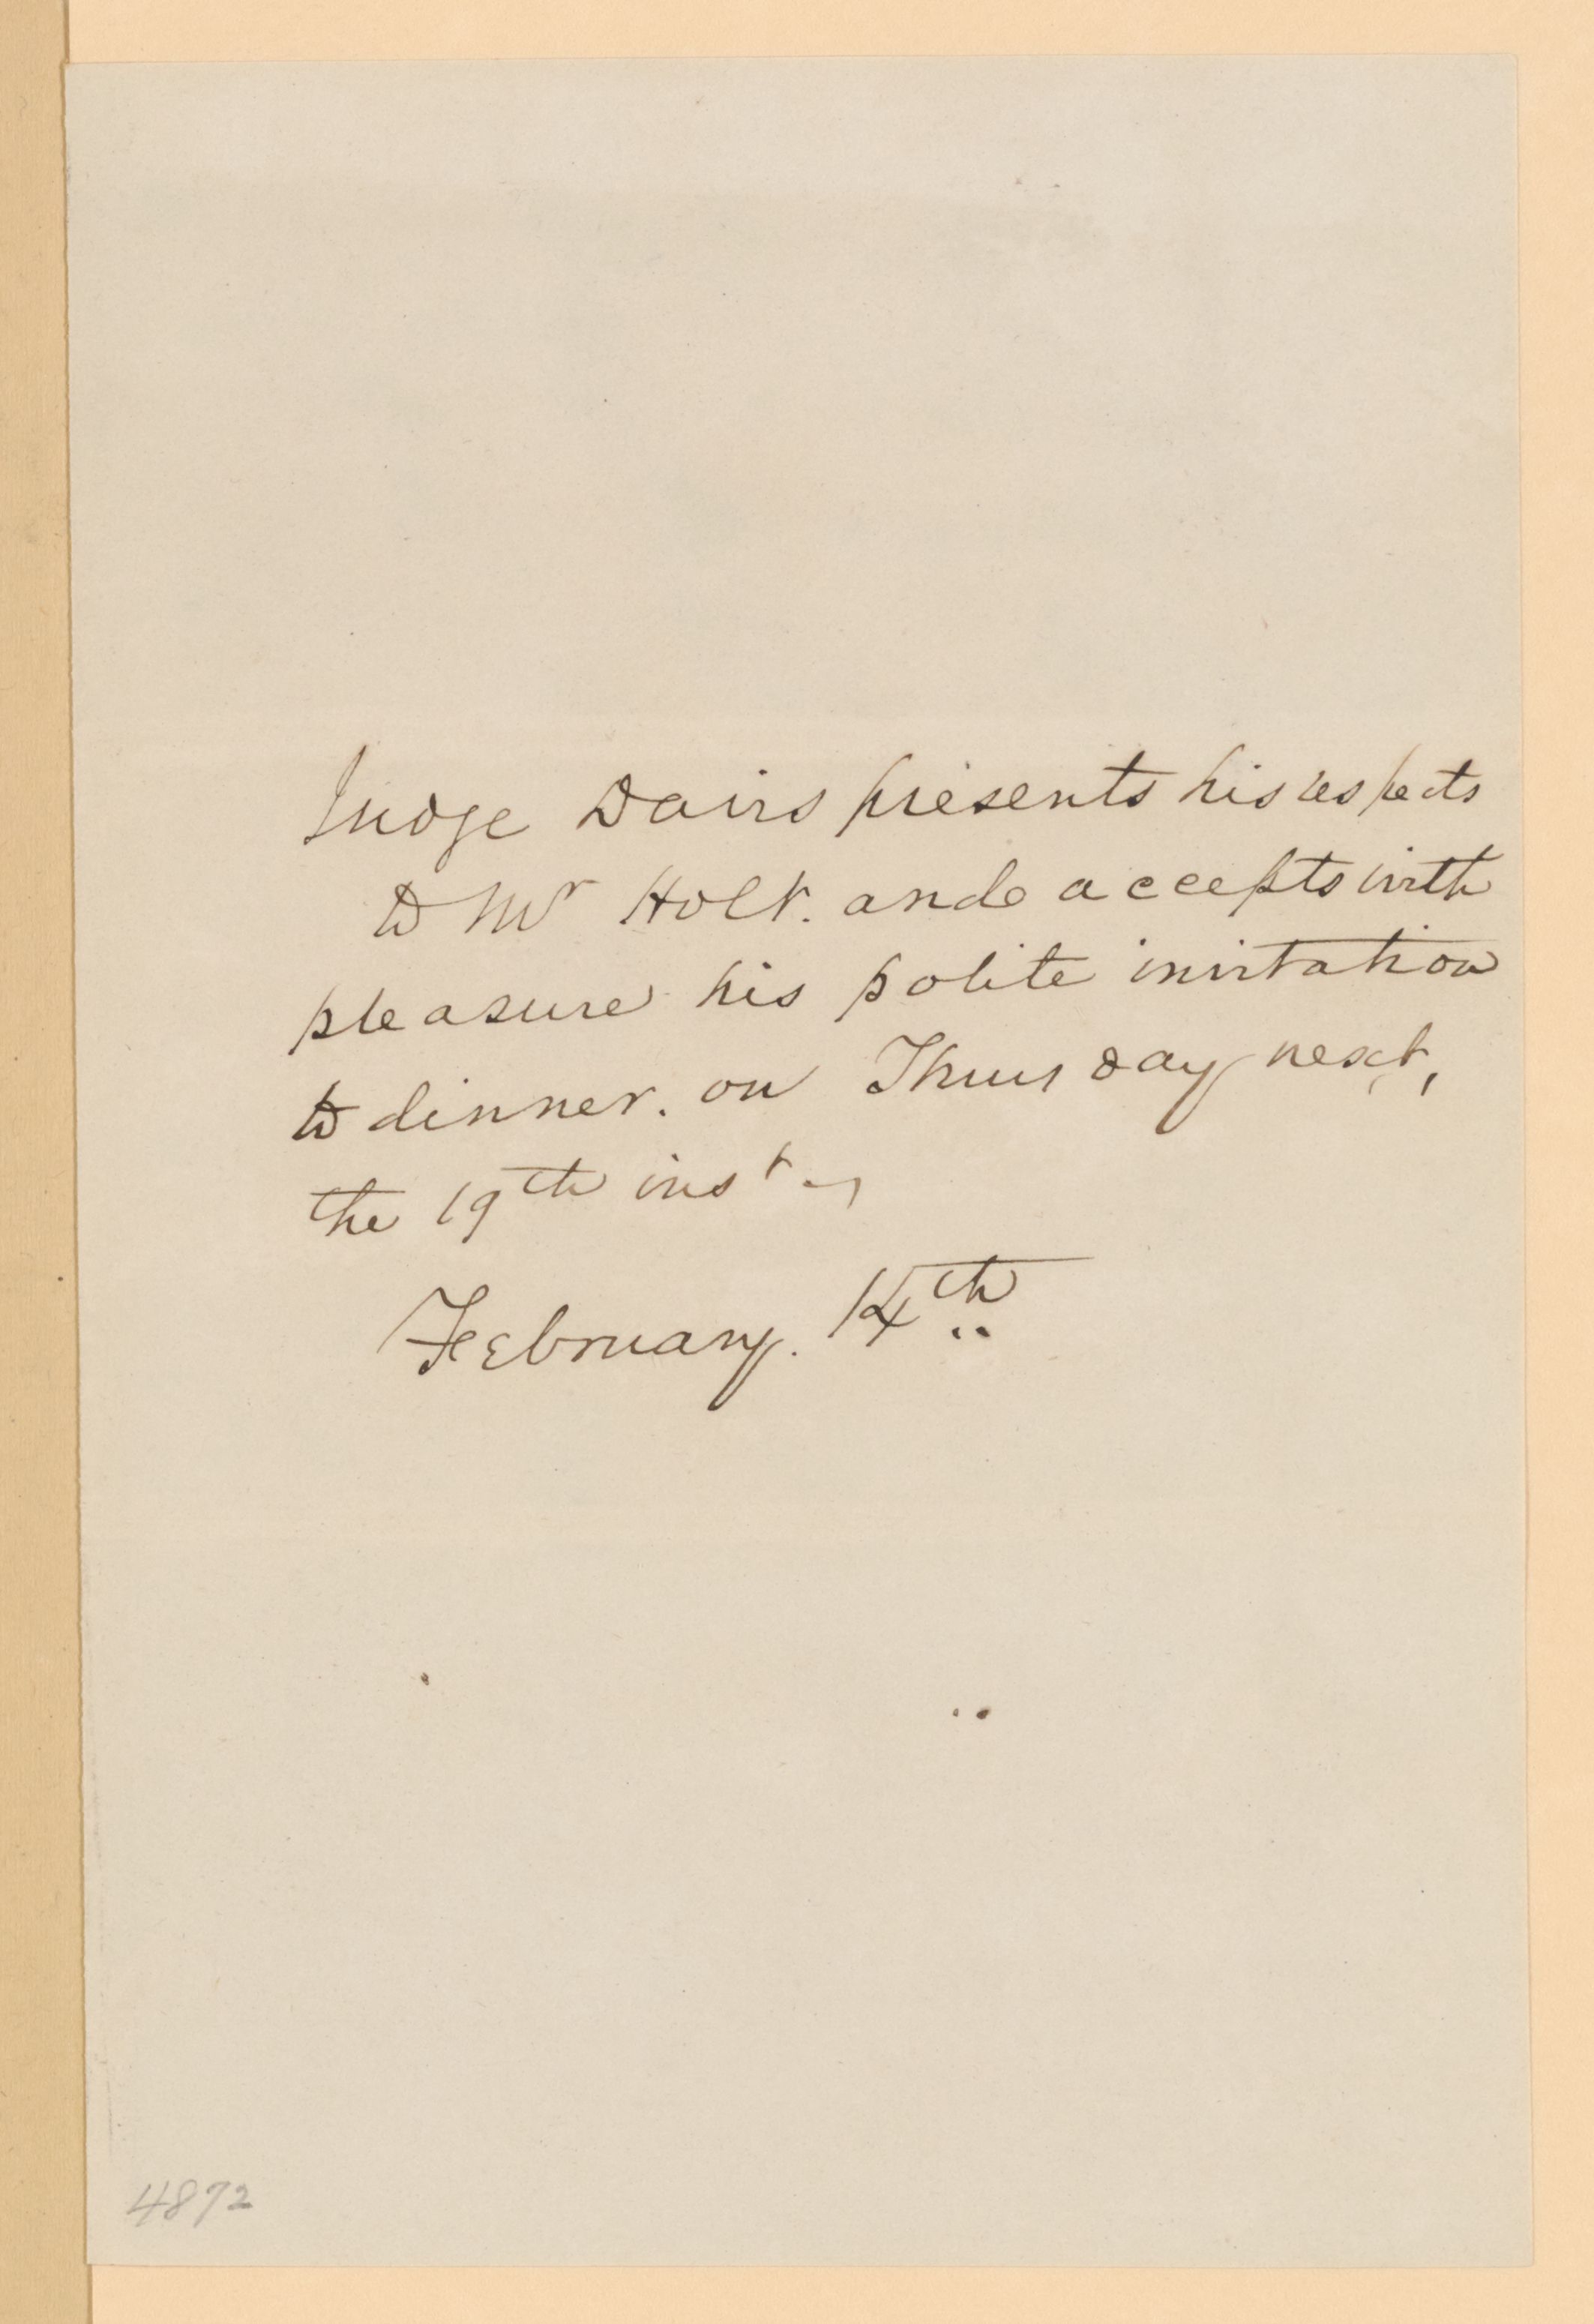 Judge Davis presents his respects
to Mr Holt. and accepts with
pleasure his polite invitation
to dinner. on Thursday next,
the 19th inst -,
February. 14th
4872